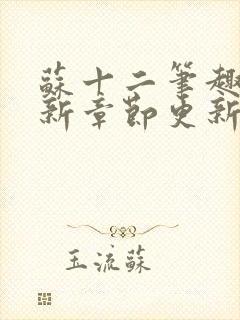 蘇十二筆趣
新章節更新
玉流蘇